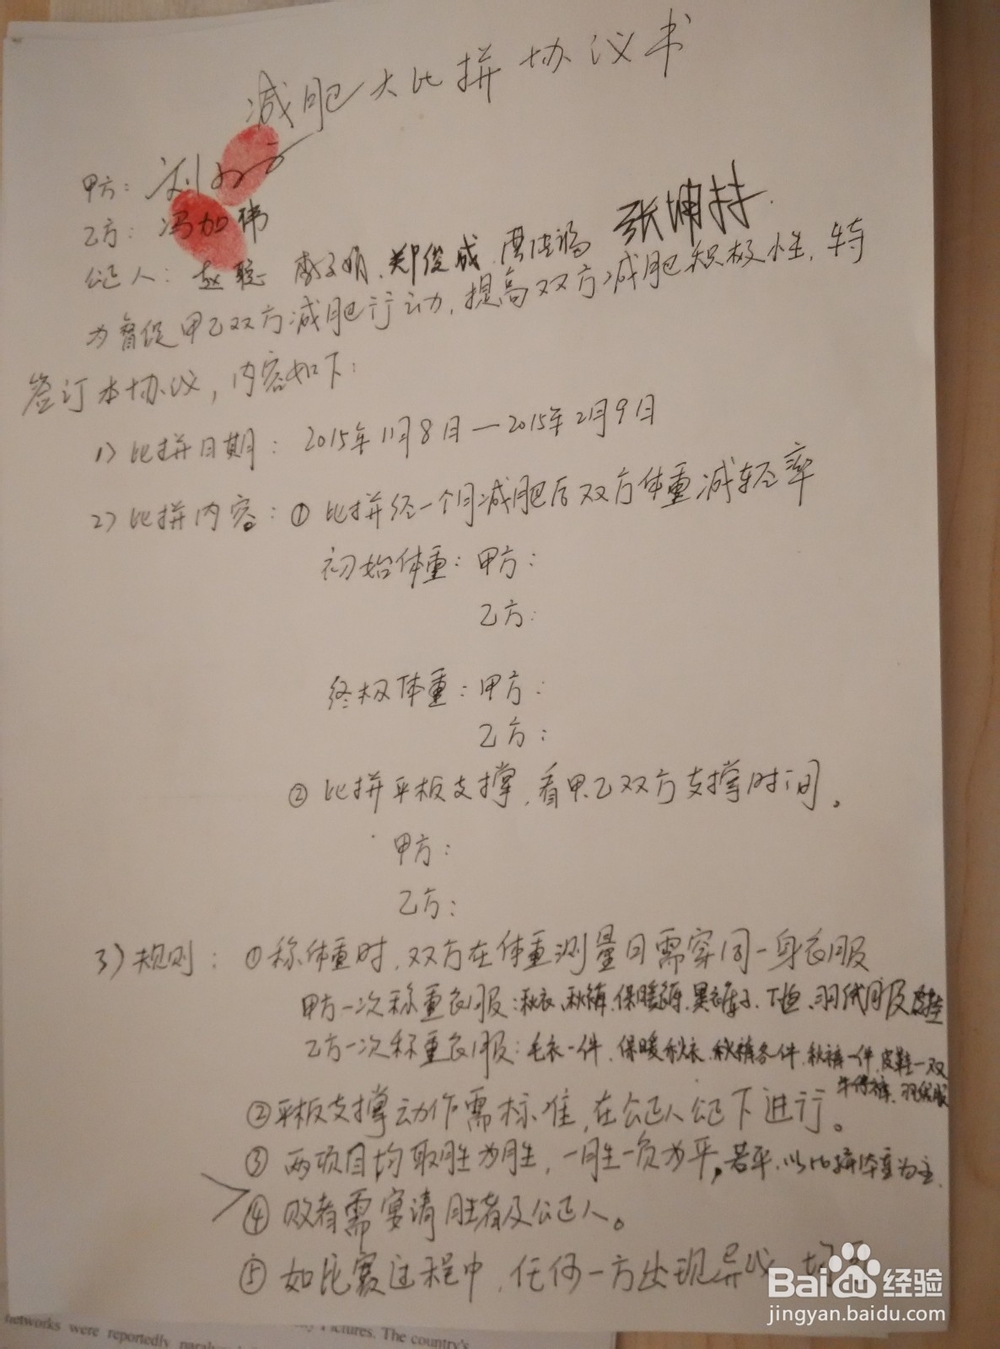 减肥大比拼协议书
甲方: 刘
乙方: 冯加伟
公证人: 赵聪 李文娟 郑俊成 张坤持
为督促甲乙双方减肥行动,提高双方减肥积极性,特
签订本协议,内容如下:
1)比拼日期: 2015年11月8日—2015年2月9日
2)比拼内容: ①比拼经一个月减肥后双方体重减轻率
初始体重: 甲方:
乙方:
终极体重: 甲方:
乙方:
②比拼平板支撑,看甲乙双方支撑时间。
甲方:
乙方:
3)规则: ①称体重时,双方在体重测量日需穿同一身衣服
甲方一次称重衣服:秋衣、秋裤、保暖裤、黑裤子、T恤、羽绒服及
乙方一次称重衣服:毛衣一件、保暖秋衣、秋裤各件、秋裤一件、皮鞋一双
牛仔裤、羽绒服
②平板支撑动作需标准,在公证人公证下进行。
③两项目均取胜为胜,一胜一负为平,若平,以比拼体重为主.
④败者需宴请胜者及公证人。
⑤如比赛过程中,任何一方出现异议,均
Baidu经验
jingyan.baidu.com
networks were reportedly
Pictures. The country's